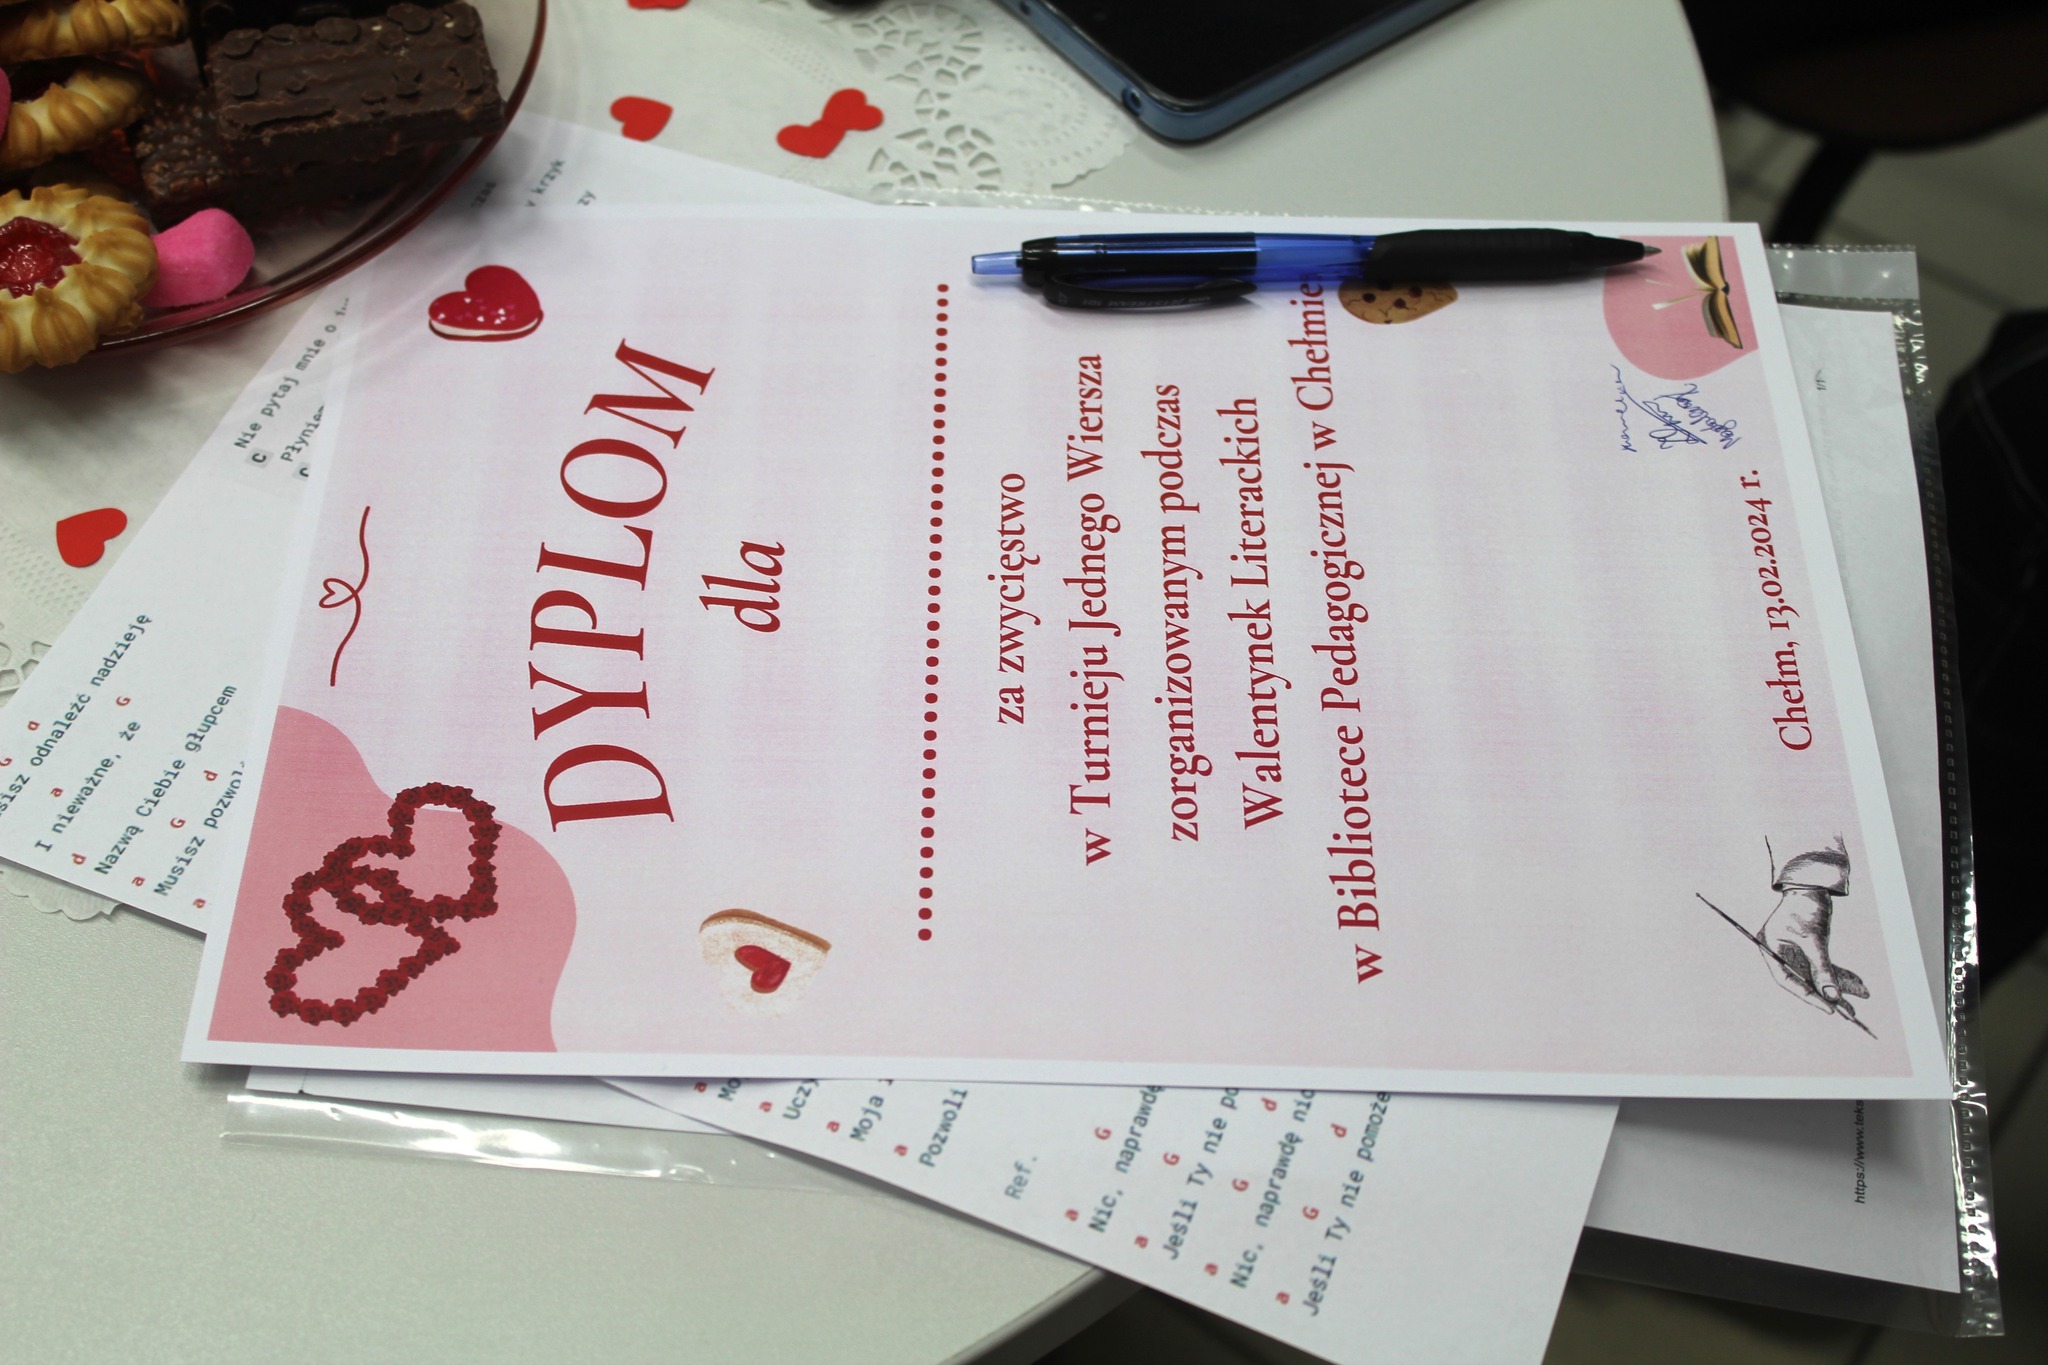 DYPLOM
dla
za zwycięstwo
w Turnieju Jednego Wiersza
zorganizowanym podczas
Walentynek Literackich
w Bibliotece Pedagogicznej w Chełmie
Chełm, 13.02.2024 r.
krzyk
Nie pytaj mnie o
C
G d
odnaleźć nadzieję
a G
I nieważne, że
d
Nazwą Ciebie głupcem
a G d
Musisz
a
a
a
a
Moja
a
Pozwoli
Ref.
a G
Nic, naprawdę
a G d
Jeśli Ty nie
a G
Nic, naprawdę
a G d
Jeśli Ty nie pomoże
1/1